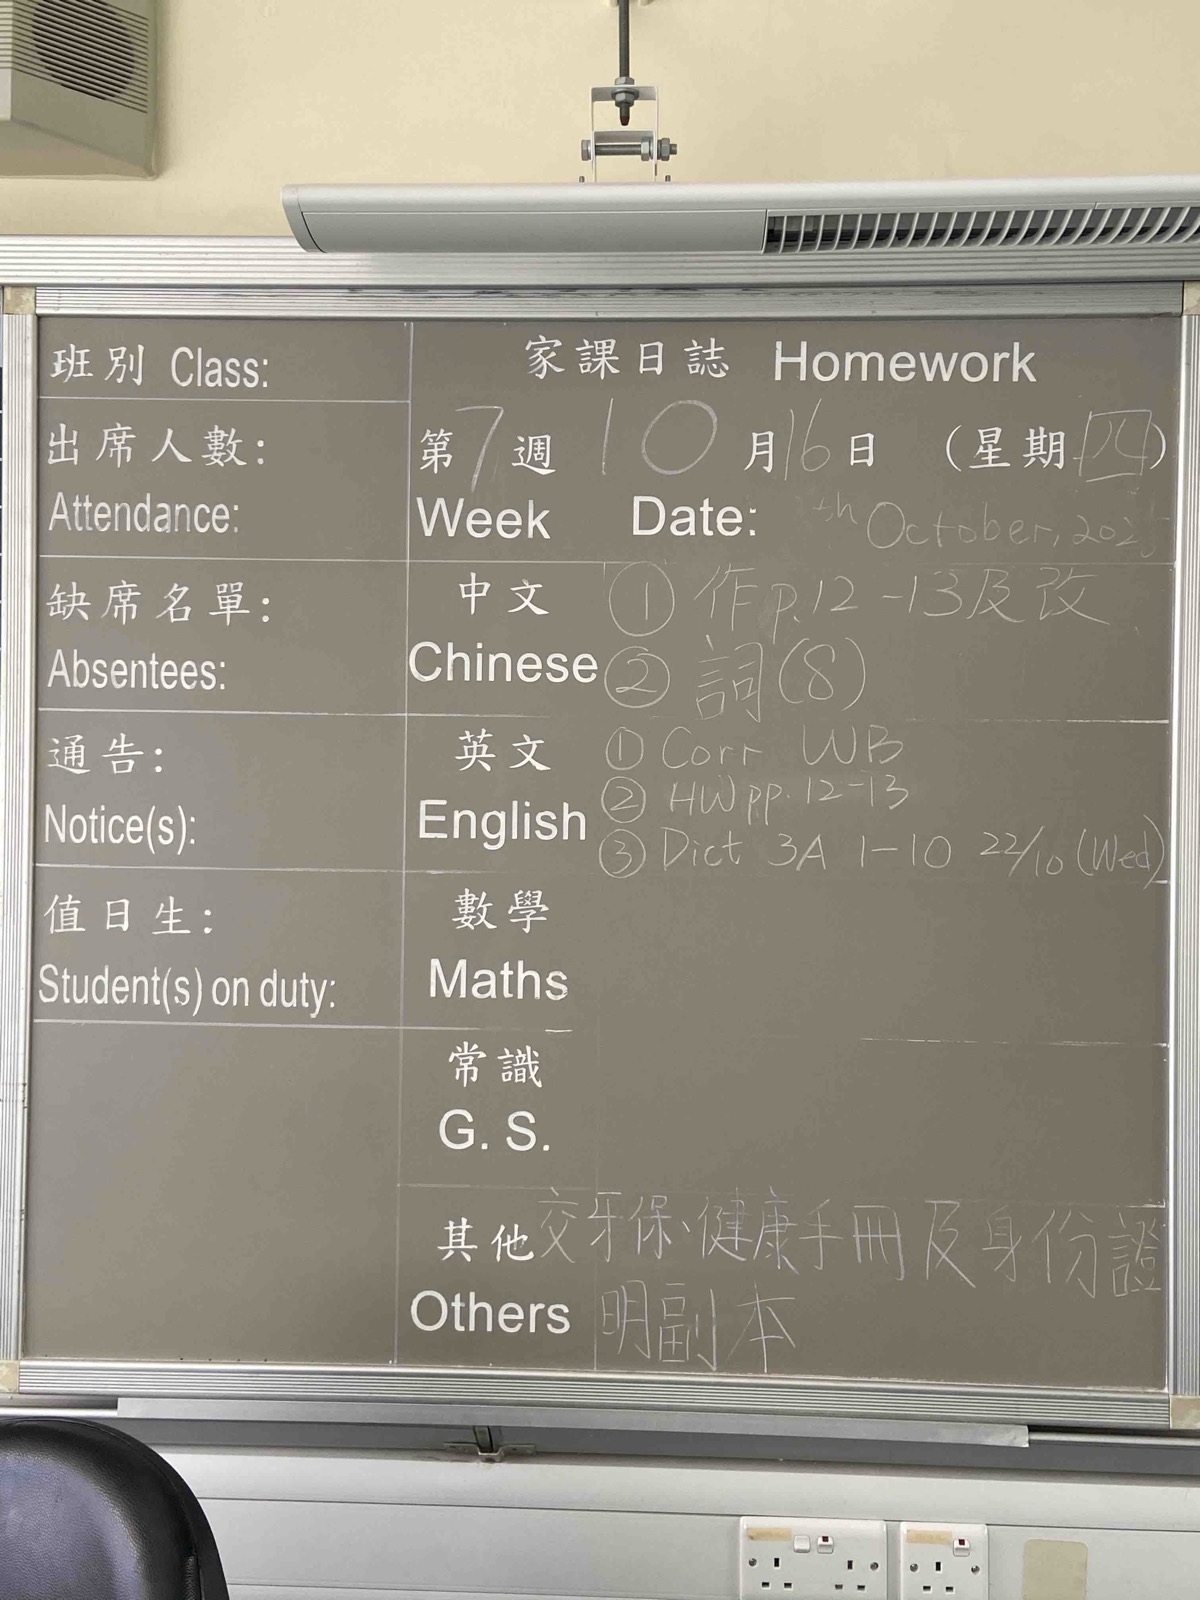 班別 Class:
家課日誌 Homework
出席人數:
Attendance:
第7週 10月16日 (星期四)
Week Date: th October, 2025
缺席名單:
Absentees:
中文
Chinese
① 作p.12-13及改
② 詞(8)
通告:
Notice(s):
英文
English
① Corr WB
② HW pp.12-13
③ Dict 3A 1-10 22/10 (Wed)
值日生:
Student(s) on duty:
數學
Maths
常識
G. S.
其他
Others
交牙保、健康手冊及身份證
明副本